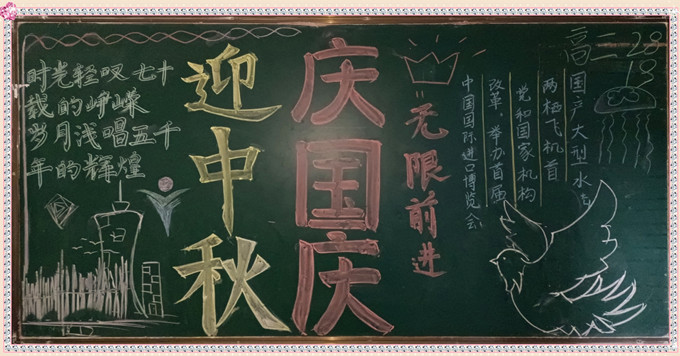 时光轻叹七十
载的峥嵘
岁月浅唱五千
年的辉煌
迎中秋
庆国庆
无限前进
高二
国产大型水
两栖飞机首
党和国家机构
改革，举办首届
中国国际进口博览会